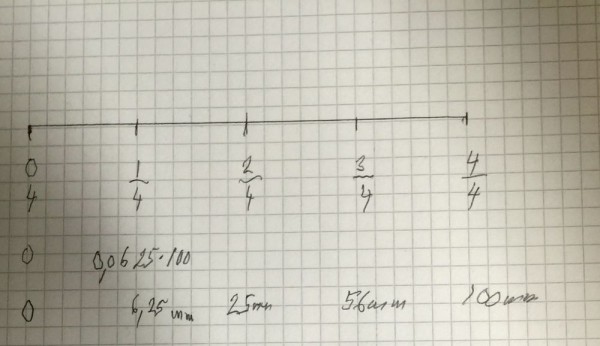 0/4 1/4 2/4 3/4 4/4
0 0,0625·100
0 6,25mm 25mm 56mm 100mm